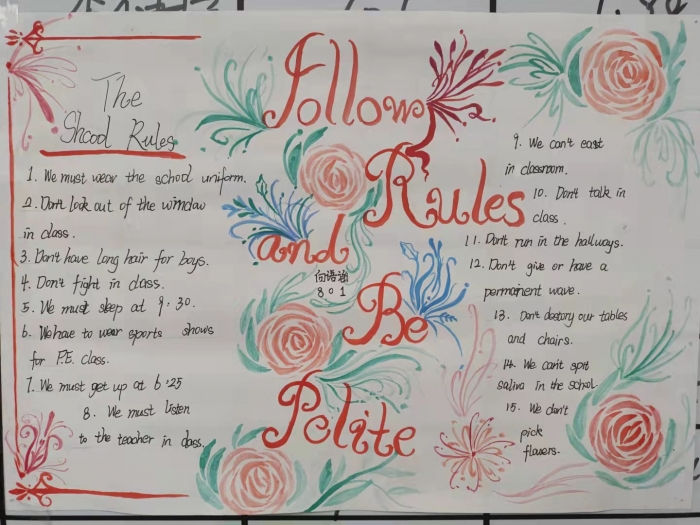 The
Shcool Rules
1. We must wear the school uniform.
2. Don't look out of the window
in class.
3. Don't have long hair for boys.
4. Don't fight in class.
5. We must sleep at 9:30.
6. We have to wear sports shows
for P.E. class.
7. We must get up at 6:25
8. We must listen
to the teacher in class.
Follow
Rules
and
801
Be
Polite
9. We can't east
in classroom.
10. Don't talk in
class.
11. Don't run in the hallways.
12. Don't give or have a
permanent wave.
13. Don't destory our tables
and chairs.
14. We can't spit
saliva in the school.
15. We don't
pick
flowers.